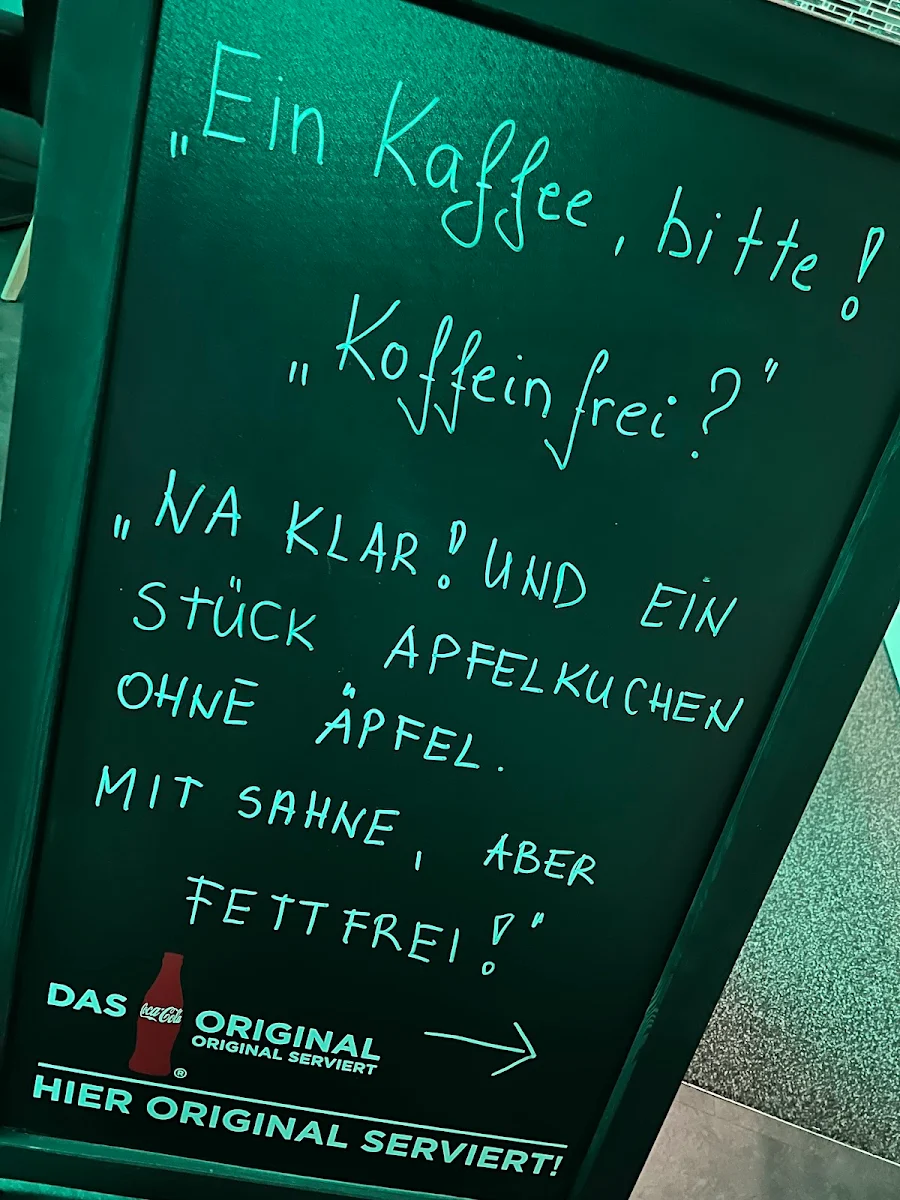 „Ein Kaffee, bitte!
„Koffeinfrei?"
„NA KLAR! UND EIN
STÜCK APFELKUCHEN
OHNE ÄPFEL.
MIT SAHNE, ABER
FETTFREI!"
DAS Coca-Cola ORIGINAL →
ORIGINAL SERVIERT
®
HIER ORIGINAL SERVIERT!